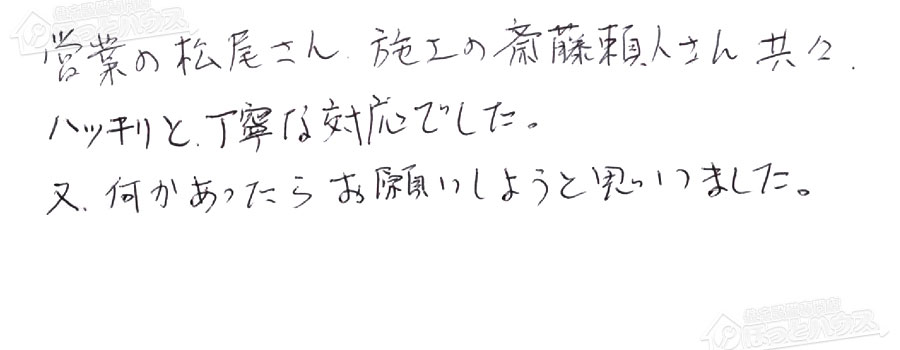 営業の松尾さん、施工の斎藤頼人さん共々、
ハッキリと、丁寧な対応でした。
又、何かあったらお願いしようと思いました。
ほっとハウス
ほっとハウス